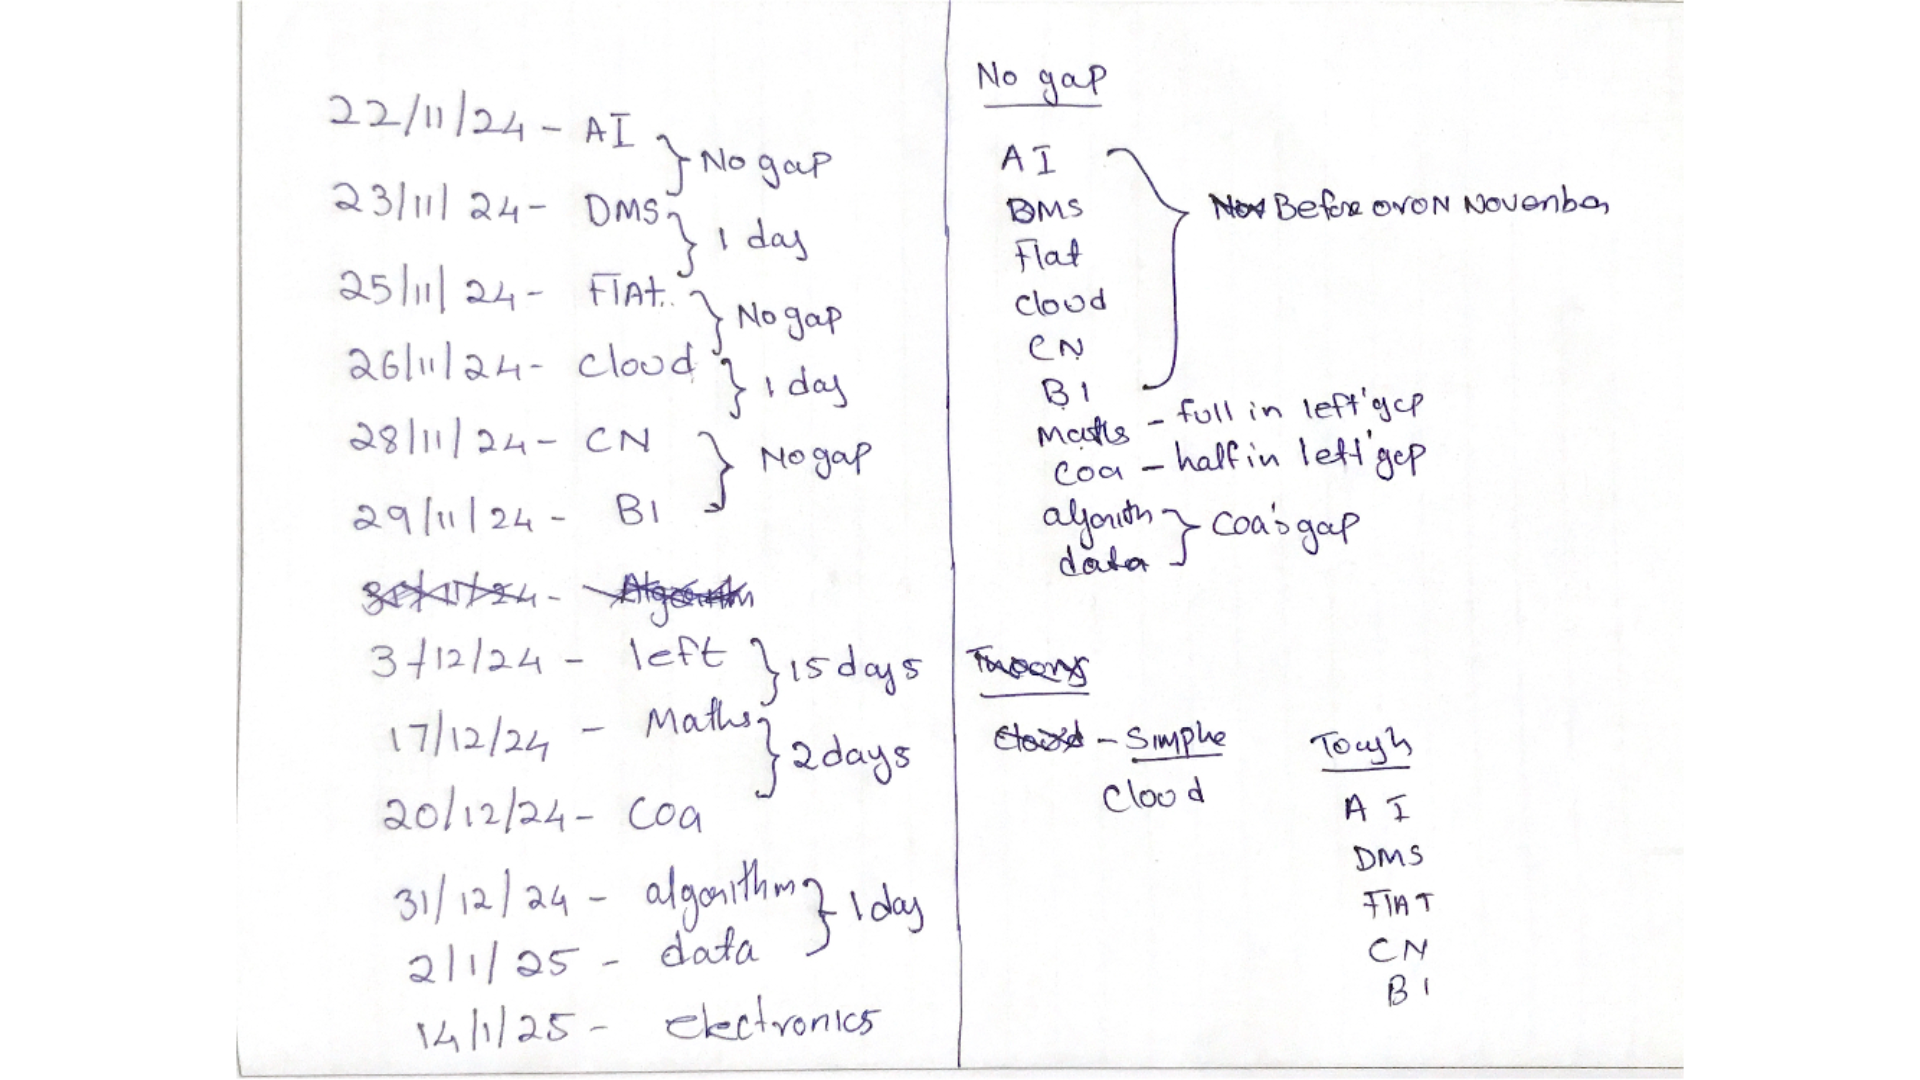 22/11/24 - AI
} No gap
23/11/24 - DMS
} 1 day
25/11/24 - FIAt..
} No gap
26/11/24 - cloud
} 1 day
28/11/24 - CN
} No gap
29/11/24 - BI
3/12/24 - left
} 15 days
17/12/24 - Maths
} 2 days
20/12/24 - COA
31/12/24 - algorithm
} 1 day
2/1/25 - data
14/1/25 - electronics
No gap
AI
DMS
Flat
cloud
CN
BI
} Before or ON November
Maths - full in left's gap
COA - half in left's gap
algorith
data
} COA's gap
- Simple
Cloud
Tough
AI
DMS
FIAT
CN
BI